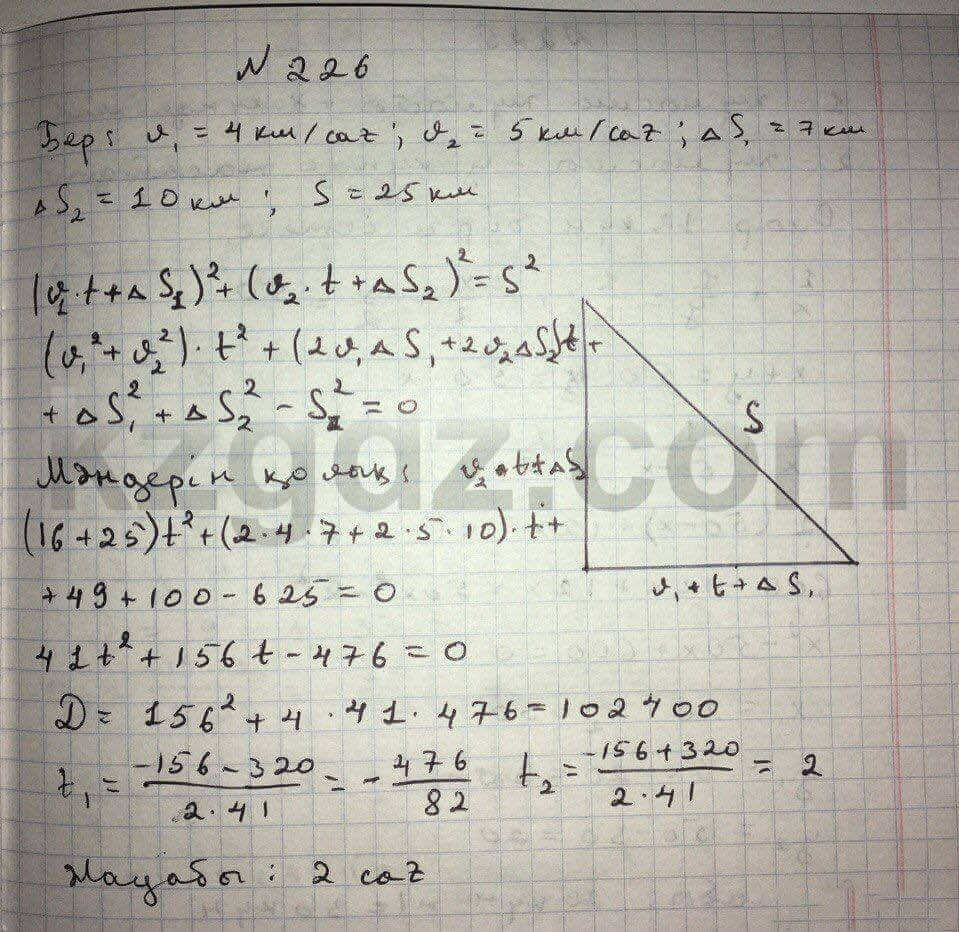 № 226
Бер: v₁ = 4 км/сағ; v₂ = 5 км/сағ; ΔS₁ = 7 км
ΔS₂ = 10 км; S = 25 км
(v₁·t + ΔS₁)² + (v₂·t + ΔS₂)² = S²
(v₁² + v₂²)·t² + (2v₁ΔS₁ + 2v₂ΔS₂)t +
+ ΔS₁² + ΔS₂² - S² = 0
S
Мәндерін қоямыз: v₂·t+ΔS₂
(16+25)t² + (2·4·7+2·5·10)·t +
v₁·t+ΔS₁
+49+100-625=0
41t² + 156t - 476 = 0
Д = 156² + 4·41·476 = 102400
t₁ = (-156-320)/(2·41) = -476/82 t₂ = (-156+320)/(2·41) = 2
Жауабы: 2 сағ
kzgdz.com